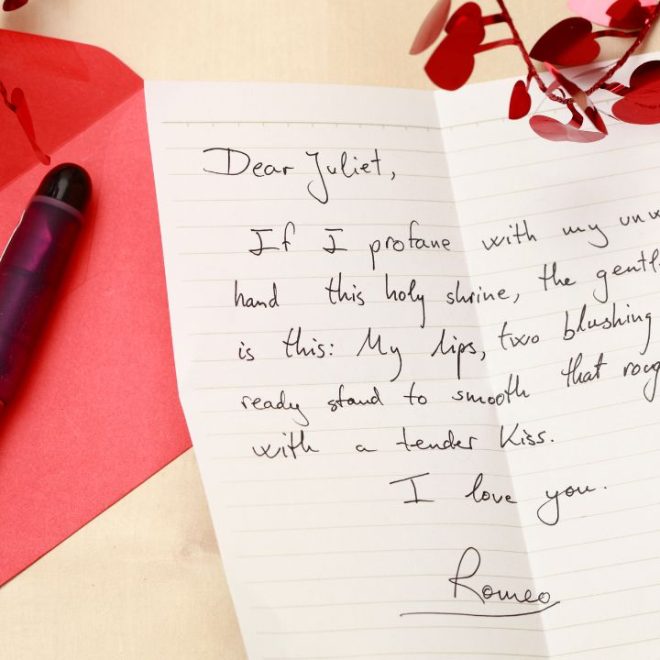 Dear Juliet,
If I profane with my
hand this holy shrine, the
is this: My lips, two blushing
ready stand to smooth that
with a tender kiss.
I love you.
Romeo